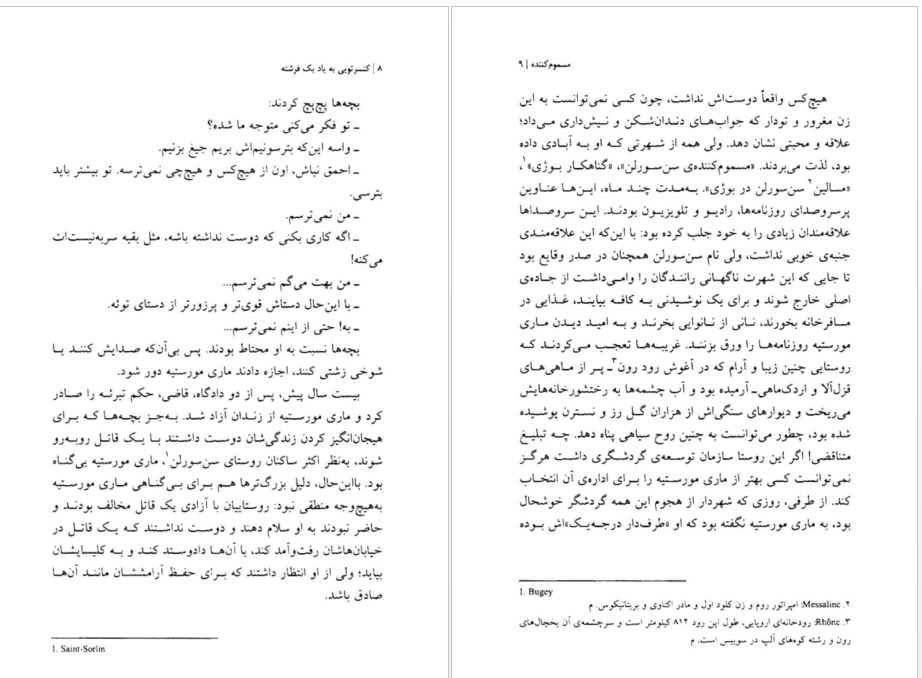 ۸ | کنسرتویی به یاد یک فرشته
بچه‌ها پچ‌پچ کردند:
ـ تو فکر می‌کنی متوجه ما شده؟
ـ واسه این‌که بترسونیم‌اش بریم جیغ بزنیم.
ـ احمق نباش، اون از هیچ‌کس و هیچ‌چی نمی‌ترسه. تو بیشتر باید
بترسی.
ـ من نمی‌ترسم.
ـ اگه کاری بکنی که دوست نداشته باشه، مثل بقیه سربه‌نیست‌ات
می‌کنه!
ـ من بهت می‌گم نمی‌ترسم...
ـ با این‌حال دستاش قوی‌تر و پرزورتر از دستای توئه.
ـ به! حتی از اینم نمی‌ترسم...
بچه‌ها نسبت به او محتاط بودند. پس بی‌آن‌که صدایش کنند یا
شوخی زشتی کنند، اجازه دادند ماری مورستیه دور شود.
بیست سال پیش، پس از دو دادگاه، قاضی، حکم تبرئه را صادر
کرد و ماری مورستیه از زندان آزاد شد. به‌جز بچه‌ها که برای
هیجان‌انگیز کردن زندگی‌شان دوست داشتند با یک قاتل روبه‌رو
شوند، به‌نظر اکثر ساکنان روستای سن‌سورلن۱، ماری مورستیه بی‌گناه
بود. بااین‌حال، دلیل بزرگ‌ترها هم برای بی‌گناهی ماری مورستیه
به‌هیچ‌وجه منطقی نبود: روستاییان با آزادی یک قاتل مخالف بودند و
حاضر نبودند به او سلام دهند و دوست نداشتند که یک قاتل در
خیابان‌هاشان رفت‌وآمد کند، با آن‌ها دادوستد کند و به کلیسایشان
بیاید؛ ولی از او انتظار داشتند که برای حفظ آرامششان مانند آن‌ها
صادق باشد.
1. Saint-Sorlin
مسموم‌کننده | ۹
هیچ‌کس واقعاً دوست‌اش نداشت، چون کسی نمی‌توانست به این
زن مغرور و تودار که جواب‌های دندان‌شکن و نیش‌داری می‌داد؛
علاقه و محبتی نشان دهد. ولی همه از شهرتی که او به آبادی داده
بود، لذت می‌بردند. «مسموم‌کننده‌ی سن‌سورلن»، «گناهکار بوژی»۱،
«مسالین۲ سن‌سورلن در بوژی». به‌مدت چند ماه، این‌ها عناوین
پرسروصدای روزنامه‌ها، رادیو و تلویزیون بودند. این سروصداها
علاقه‌مندان زیادی را به خود جلب کرده بود: با این‌که این علاقه‌مندی
جنبه‌ی خوبی نداشت، ولی نام سن‌سورلن همچنان در صدر وقایع بود
تا جایی که این شهرت ناگهانی رانندگان را وامی‌داشت از جاده‌ی
اصلی خارج شوند و برای یک نوشیدنی به کافه بیایند، غذایی در
مسافرخانه بخورند، نانی از نانوایی بخرند و به امید دیدن ماری
مورستیه روزنامه‌ها را ورق بزنند. غریبه‌ها تعجب می‌کردند که
روستایی چنین زیبا و آرام که در آغوش رود رون۳ـ پر از ماهی‌های
قزل‌آلا و اردک‌ماهی‌ـ آرمیده بود و آب چشمه‌ها به رختشورخانه‌هایش
می‌ریخت و دیوارهای سنگی‌اش از هزاران گل رز و نسترن پوشیده
شده بود، چطور می‌توانست به چنین روح سیاهی پناه دهد. چه تبلیغ
متناقضی! اگر این روستا سازمان توسعه‌ی گردشگری داشت هرگز
نمی‌توانست کسی بهتر از ماری مورستیه را برای اداره‌ی آن انتخاب
کند. از طرفی، روزی که شهردار از هجوم این همه گردشگر خوشحال
بود، به ماری مورستیه نگفته بود که او «طرف‌دار درجه‌یک»اش بوده
1. Bugey
۲. Messaline: امپراتور روم و زن کلود اول و مادر اکتاوی و بریتانیکوس. م
۳. Rhône: رودخانه‌ای اروپایی، طول این رود ۸۱۲ کیلومتر است و سرچشمه‌ی آن یخچال‌های
رون و رشته کوه‌های آلپ در سوییس است. م